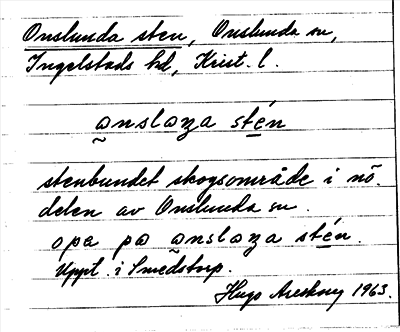 Onslunda sten, Onslunda sn,
Ingelstads hd, Krist. l.
a̰nslaza stén
stenbundet skogsområde i nö.
delen av Onslunda sn.
opa pa a̰nslaza stén.
Uppt. i Smedstorp.
Hugo Areskoug 1963.